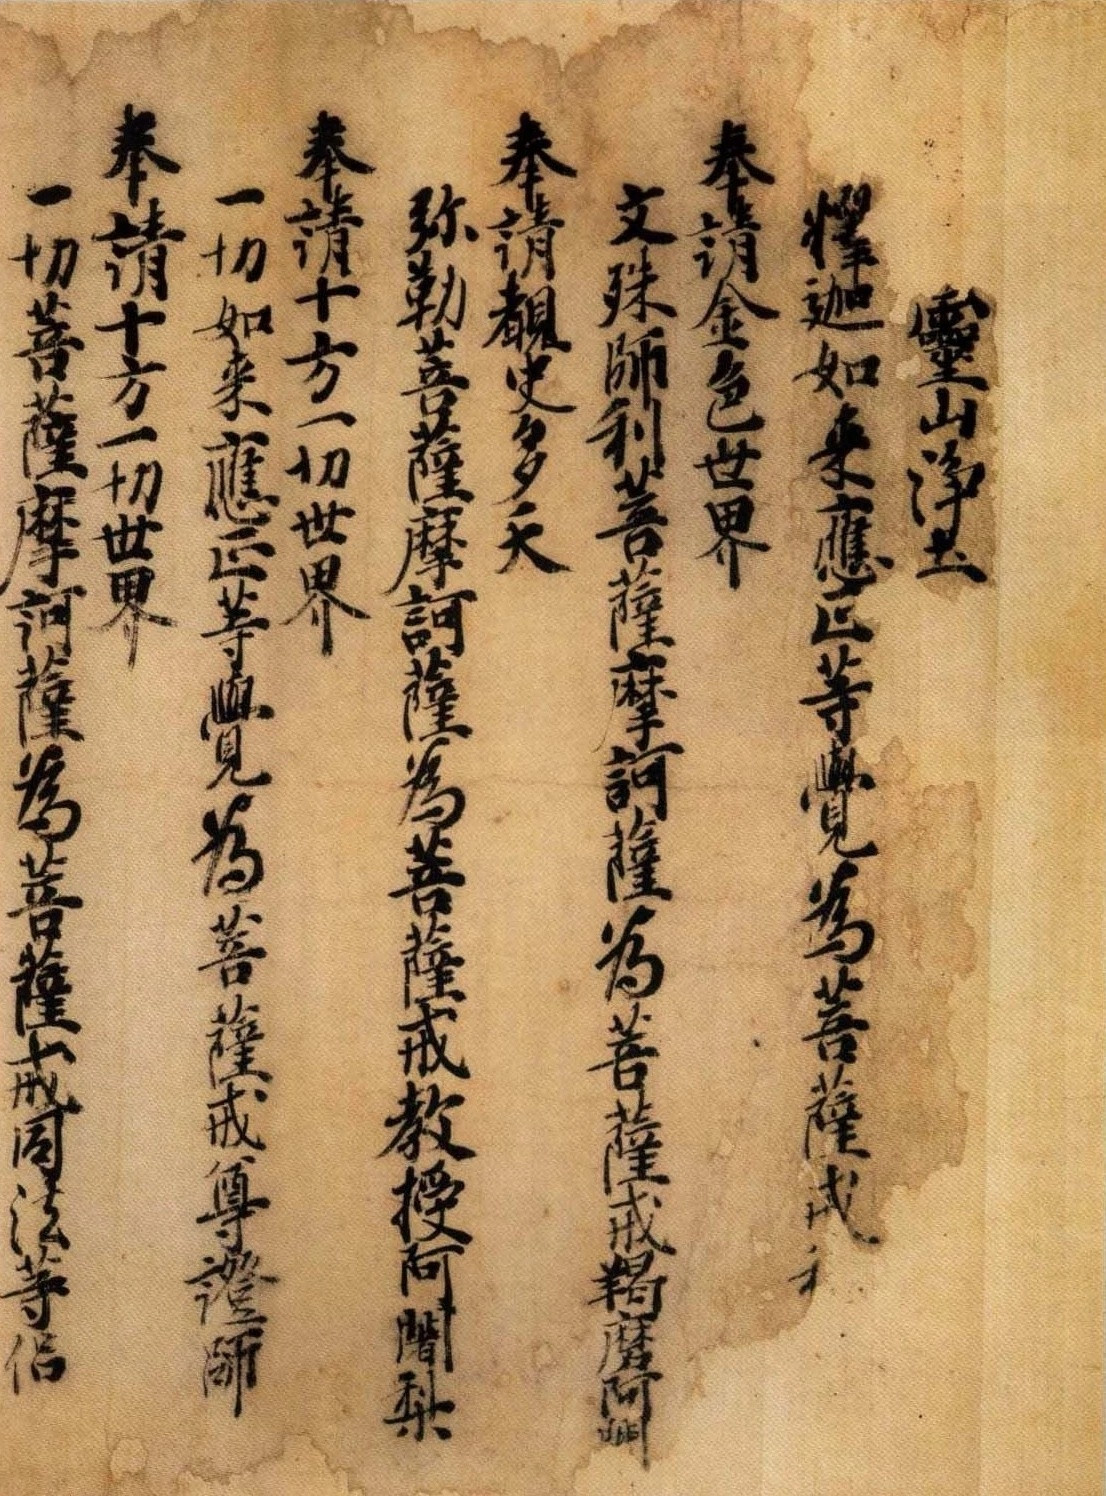 靈山淨土
釋迦如来應正等覺為菩薩戒和
奉請金色世界
文殊師利菩薩摩訶薩為菩薩戒羯磨阿闍
奉請覩史多天
弥勒菩薩摩訶薩為菩薩戒教授阿闍梨
奉請十方一切世界
一切如来應正等覺為菩薩戒尊證師
奉請十方一切世界
一切菩薩摩訶薩為菩薩戒同法等侣